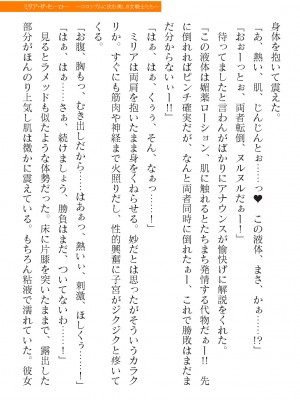 ミリア・ザ・ヒーロー
身体を抱いて震えた。
「あ、熱い、肌、じんじんとぉ……っ♥　この液体、まさ、かぁ……!?」
『おぉーっとぉ、両者転倒、ヌルヌルだぁー!!』
待ってましたと言わんばかりにアナウンスが愉快げに解説をくれた。
『この液体は媚薬ローション、肌に触れるとたちまち発情する代物だぁー!!　先
に倒れればピンチ確実だが、なんと両者同時に倒れたぁー、これで勝敗はまだま
だ分からないー!!』
「はぁ、はぁ、くぅぅ、そん、なぁっ……！
　ミリアは両肩を抱いたまま身をくねらせる。妙だとは思ったがそういうカラク
リか。すぐにも筋肉や神経まで火照りだし、性的興奮に子宮がジクジクと疼いて
「お腹、胸もっ、むき出しだから……はあぁっ、熱いぃ、刺激、ほしくぅ……！
「はぁ、はぁ……さぁ、続けましょう、勝負はまだ、ついてないわ……！
　見るとラメッドも似たような体勢だった。床に片膝を突いたままで、露出した
部分がほんのり上気し肌は微かに震えている。もちろん粘液で濡れていた。彼女